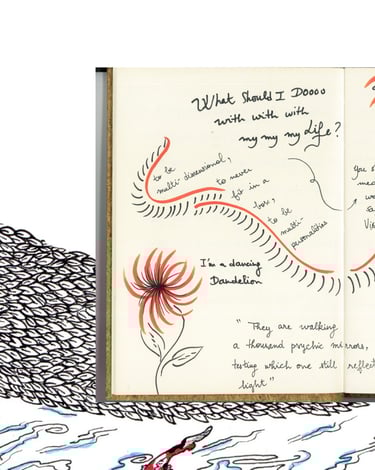 What Should I Doooo
with with with
my my my Life?
to be
multi-dimensional,
to never
fit in a
box,
to be
multi-
personalities
I'm a dancing
Dandelion
"They are walking
a thousand psychic mirrors,
testing which one still reflect
light"